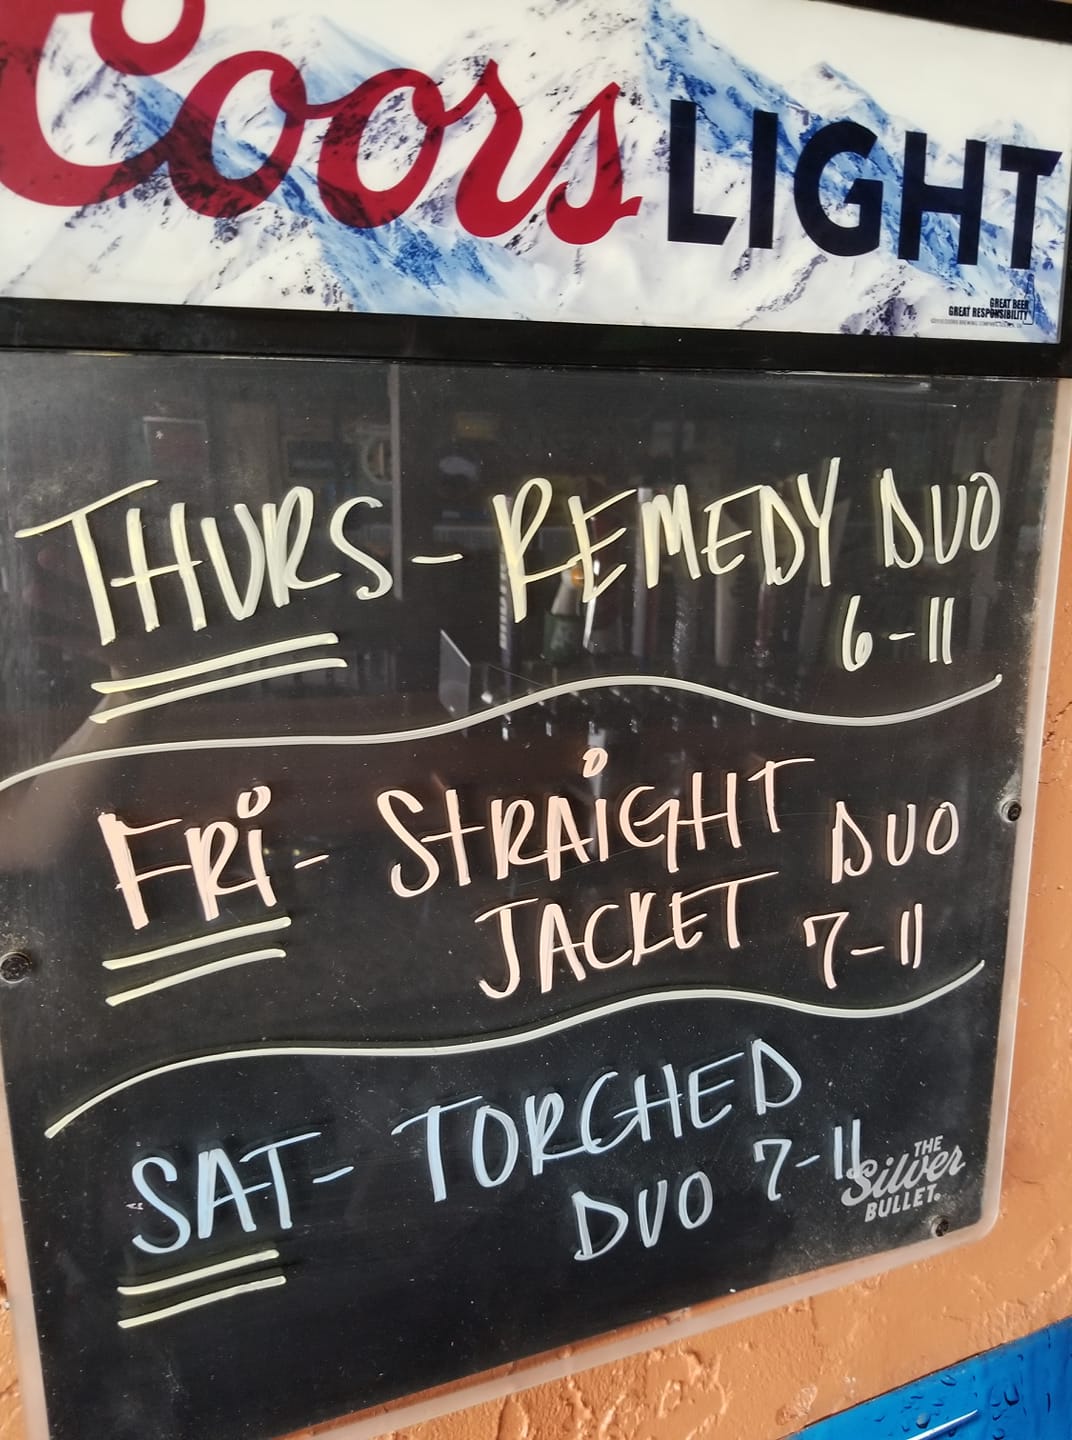 Coors LIGHT
GREAT BEER
GREAT RESPONSIBILITY
THURS - REMEDY DUO
6-11
FRi - STRAiGHT DUO
JACKET 7-11
SAT - TORCHED
DUO 7-11
THE
Silver
BULLET.